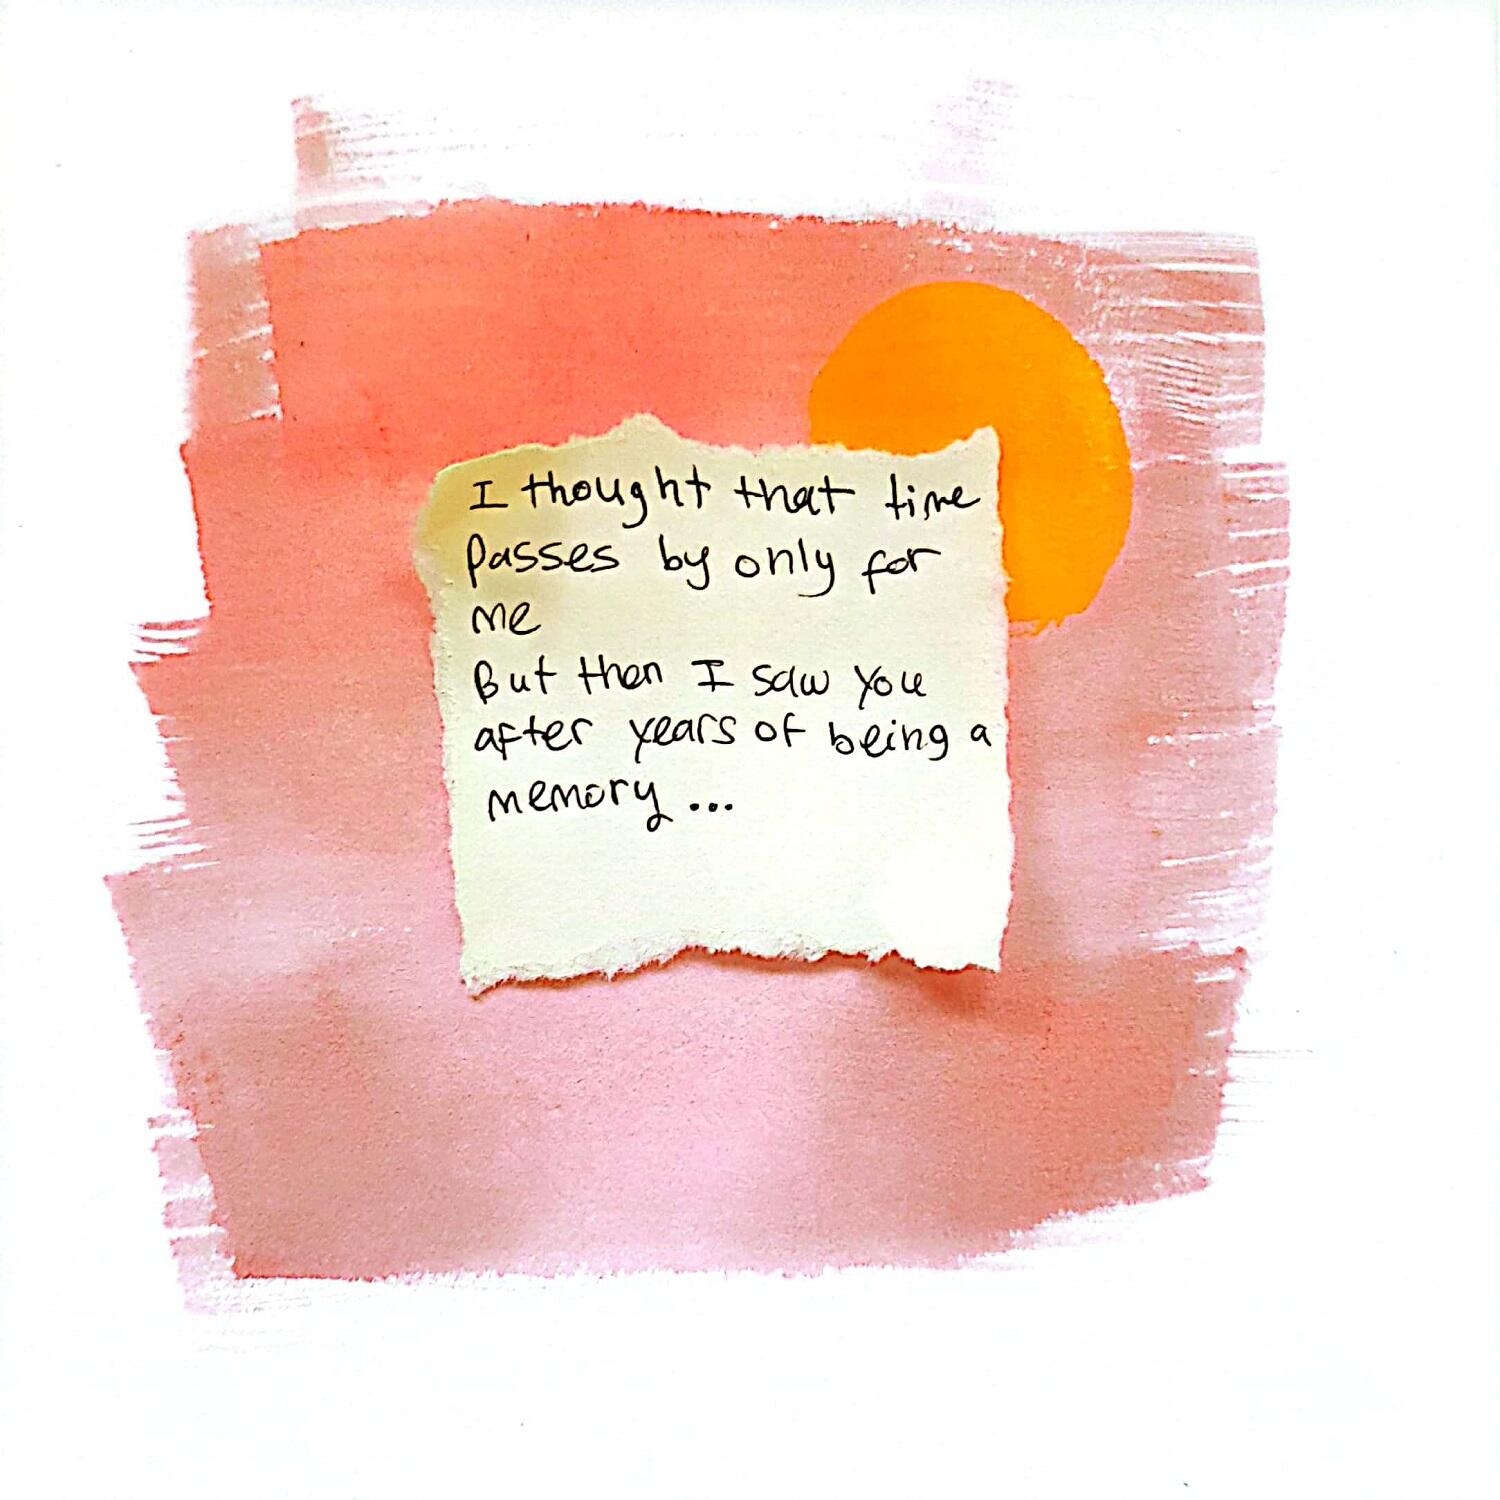 I thought that time
passes by only for
me
But then I saw you
after years of being a
memory ...